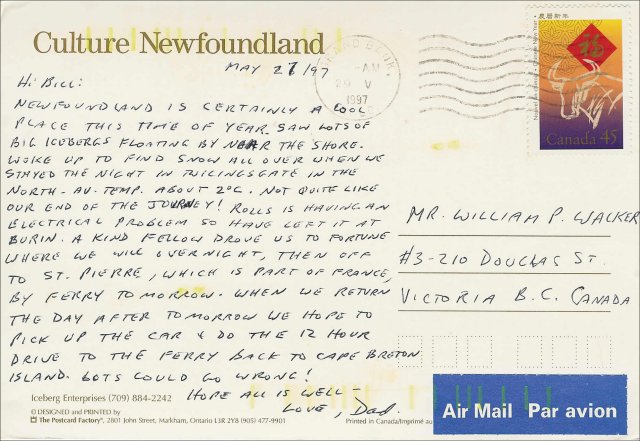 Culture Newfoundland
MAY 27/97
HI BILL:
NEWFOUNDLAND IS CERTAINLY A COOL
PLACE THIS TIME OF YEAR. SAW LOTS OF
BIG ICEBERGS FLOATING BY NEAR THE SHORE.
WOKE UP TO FIND SNOW ALL OVER WHEN WE
STAYED THE NIGHT IN TWILLINGSGATE IN THE
NORTH - AV. TEMP. ABOUT 2°C. NOT QUITE LIKE
OUR END OF THE JOURNEY! ROLLS IS HAVING AN
ELECTRICAL PROBLEM SO HAVE LEFT IT AT
BURIN. A KIND FELLOW DROVE US TO FORTUNE
WHERE WE WILL OVERNIGHT, THEN OFF
TO ST. PIERRE, WHICH IS PART OF FRANCE,
BY FERRY TOMORROW. WHEN WE RETURN
THE DAY AFTER TOMORROW WE HOPE TO
PICK UP THE CAR & DO THE 12 HOUR
DRIVE TO THE FERRY BACK TO CAPE BRETON
ISLAND. LOTS COULD GO WRONG!
HOPE ALL IS WELL -
LOVE, Dad.
Iceberg Enterprises (709) 884-2242
© DESIGNED and PRINTED by
The Postcard Factory, 2801 John Street, Markham, Ontario L3R 2Y8 (905) 477-9901
Printed in Canada/Imprimé au
AM
29 V
1997
農曆新年
福
Canada 45
MR. WILLIAM P. WALKER
#3-210 DOUGLAS ST.
VICTORIA B.C. CANADA
Air Mail Par avion